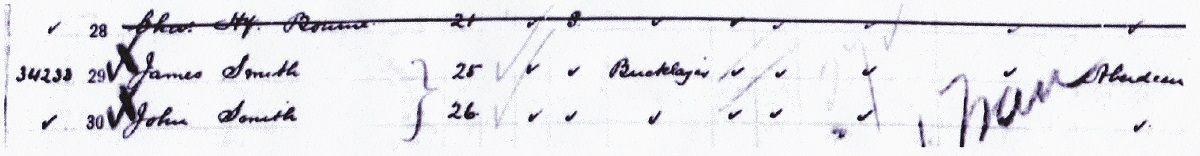 ✓ 28 Chas. Hy. Bourne 21 ✓ 8 ✓ ✓ ✓ ✓ ✓ ✓
34233 29 James Smith } 25 ✓ ✓ ✓ ✓ ✓ ✓ Aberdeen
✓ 30 John Smith 26 ✓ ✓ ✓ ✓ ✓ ✓ ✓